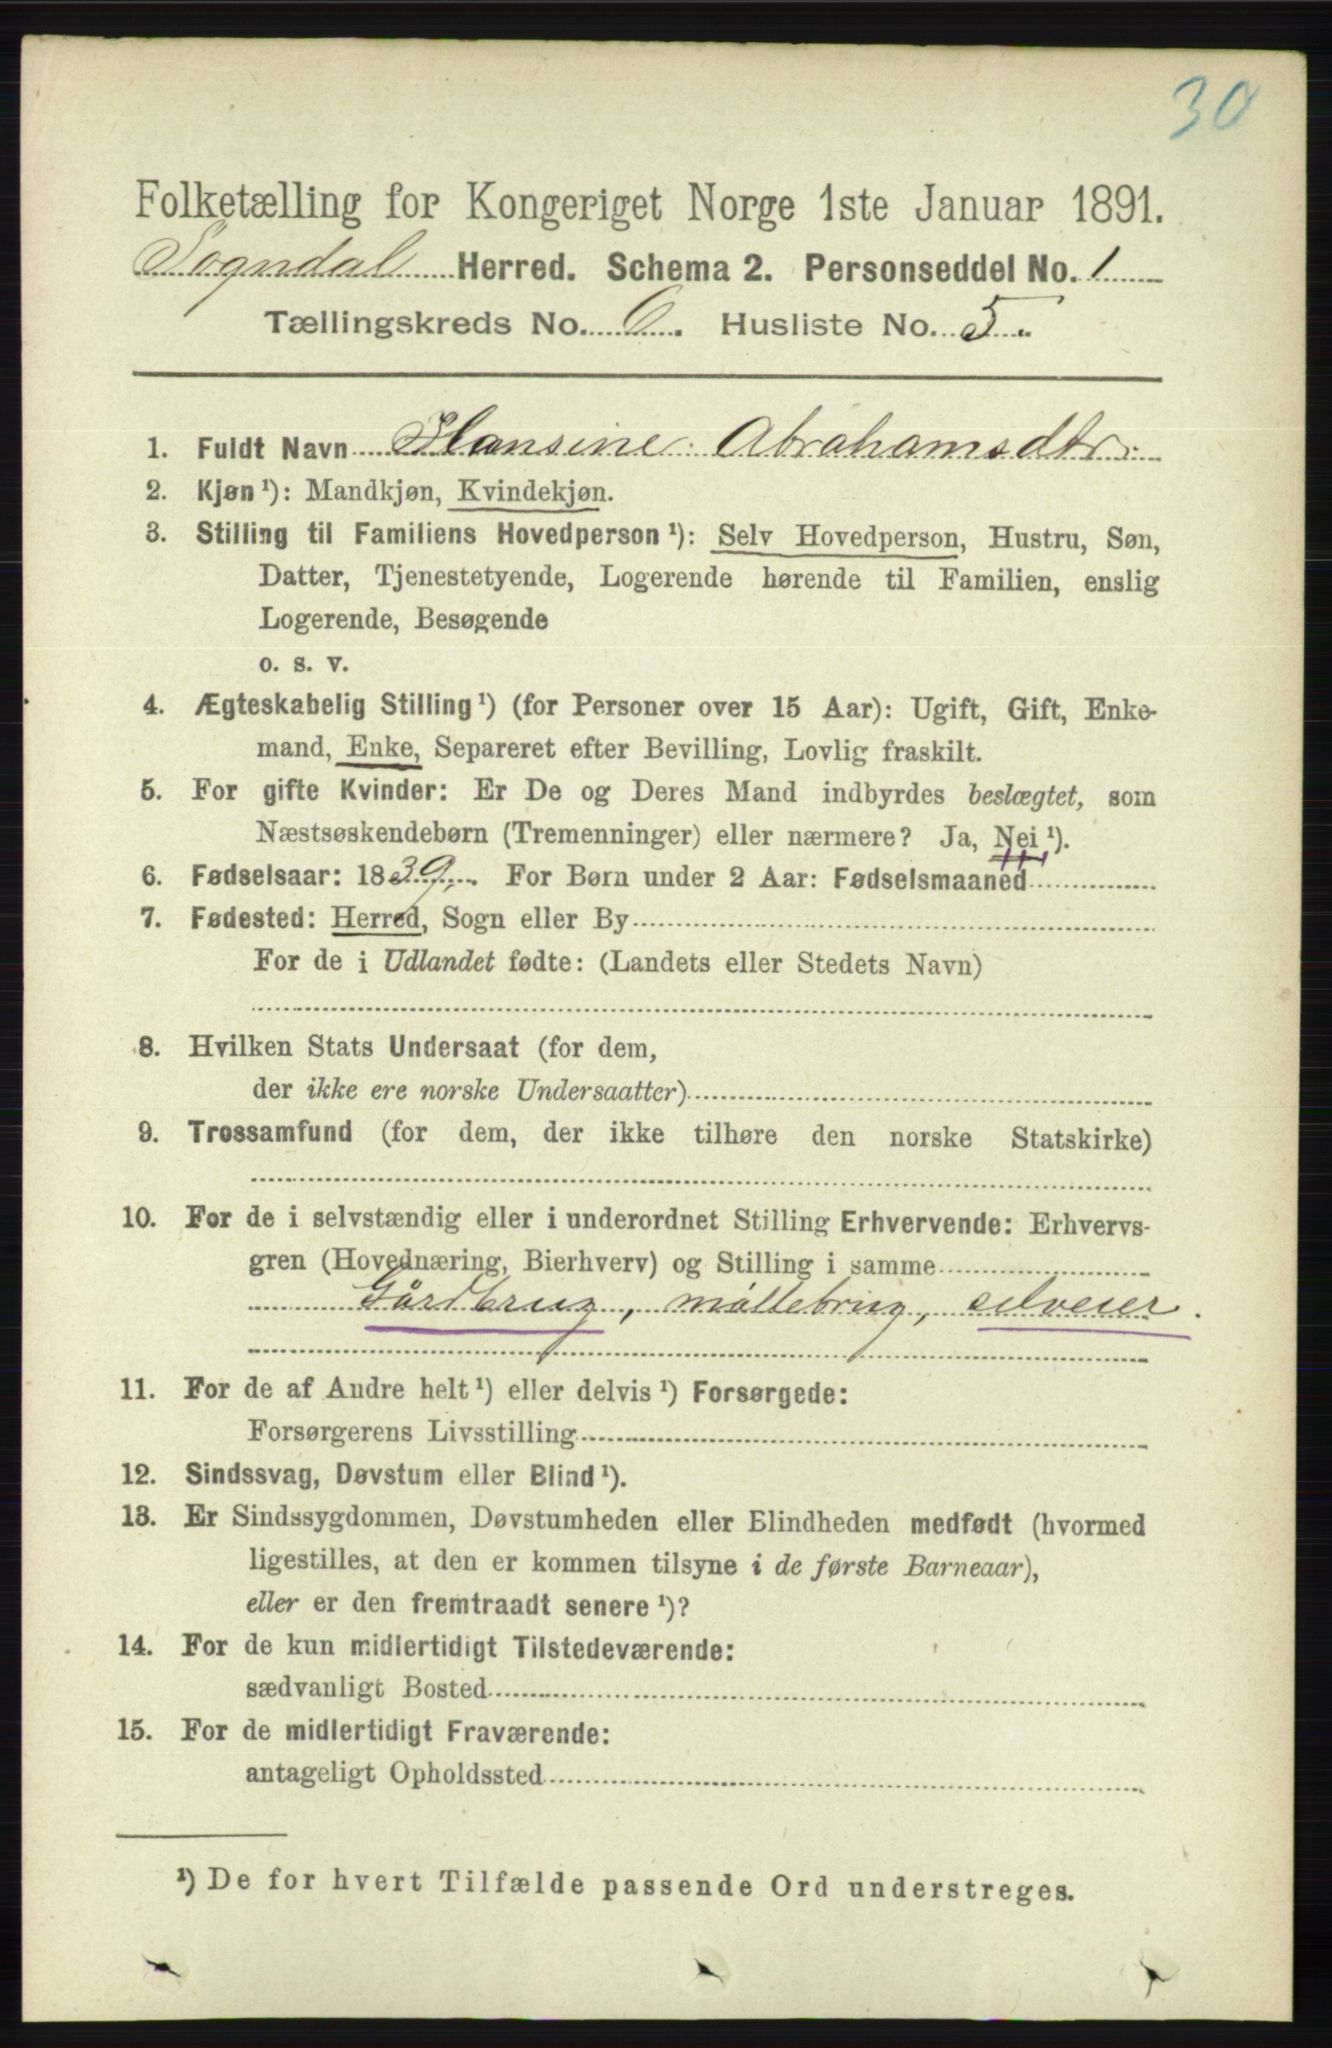 30
Folketælling for Kongeriget Norge 1ste Januar 1891.
Sogndal Herred. Schema 2. Personseddel No. 1
Tællingskreds No. 6. Husliste No. 5.
1. Fuldt Navn Hansine Abrahamsdtr.
2. Kjøn ¹): Mandkjøn, Kvindekjøn.
3. Stilling til Familiens Hovedperson ¹): Selv Hovedperson, Hustru, Søn,
Datter, Tjenestetyende, Logerende hørende til Familien, enslig
Logerende, Besøgende
o. s. v.
4. Ægteskabelig Stilling ¹) (for Personer over 15 Aar): Ugift, Gift, Enke-
mand, Enke, Separeret efter Bevilling, Lovlig fraskilt.
5. For gifte Kvinder: Er De og Deres Mand indbyrdes beslægtet, som
Næstsøskendebørn (Tremenninger) eller nærmere? Ja, Nei ¹).
6. Fødselsaar: 1839. For Børn under 2 Aar: Fødselsmaaned
7. Fødested: Herred, Sogn eller By
For de i Udlandet fødte: (Landets eller Stedets Navn)
8. Hvilken Stats Undersaat (for dem,
der ikke ere norske Undersaatter)
9. Trossamfund (for dem, der ikke tilhøre den norske Statskirke)
10. For de i selvstændig eller i underordnet Stilling Erhvervende: Erhvervs-
gren (Hovednæring, Bierhverv) og Stilling i samme
Gårdbrug, møllebrug, selveier.
11. For de af Andre helt ¹) eller delvis ¹) Forsørgede:
Forsørgerens Livsstilling
12. Sindssvag, Døvstum eller Blind ¹).
13. Er Sindssygdommen, Døvstumheden eller Blindheden medfødt (hvormed
ligestilles, at den er kommen tilsyne i de første Barneaar),
eller er den fremtraadt senere ¹)?
14. For de kun midlertidigt Tilstedeværende:
sædvanligt Bosted
15. For de midlertidigt Fraværende:
antageligt Opholdssted
¹) De for hvert Tilfælde passende Ord understreges.